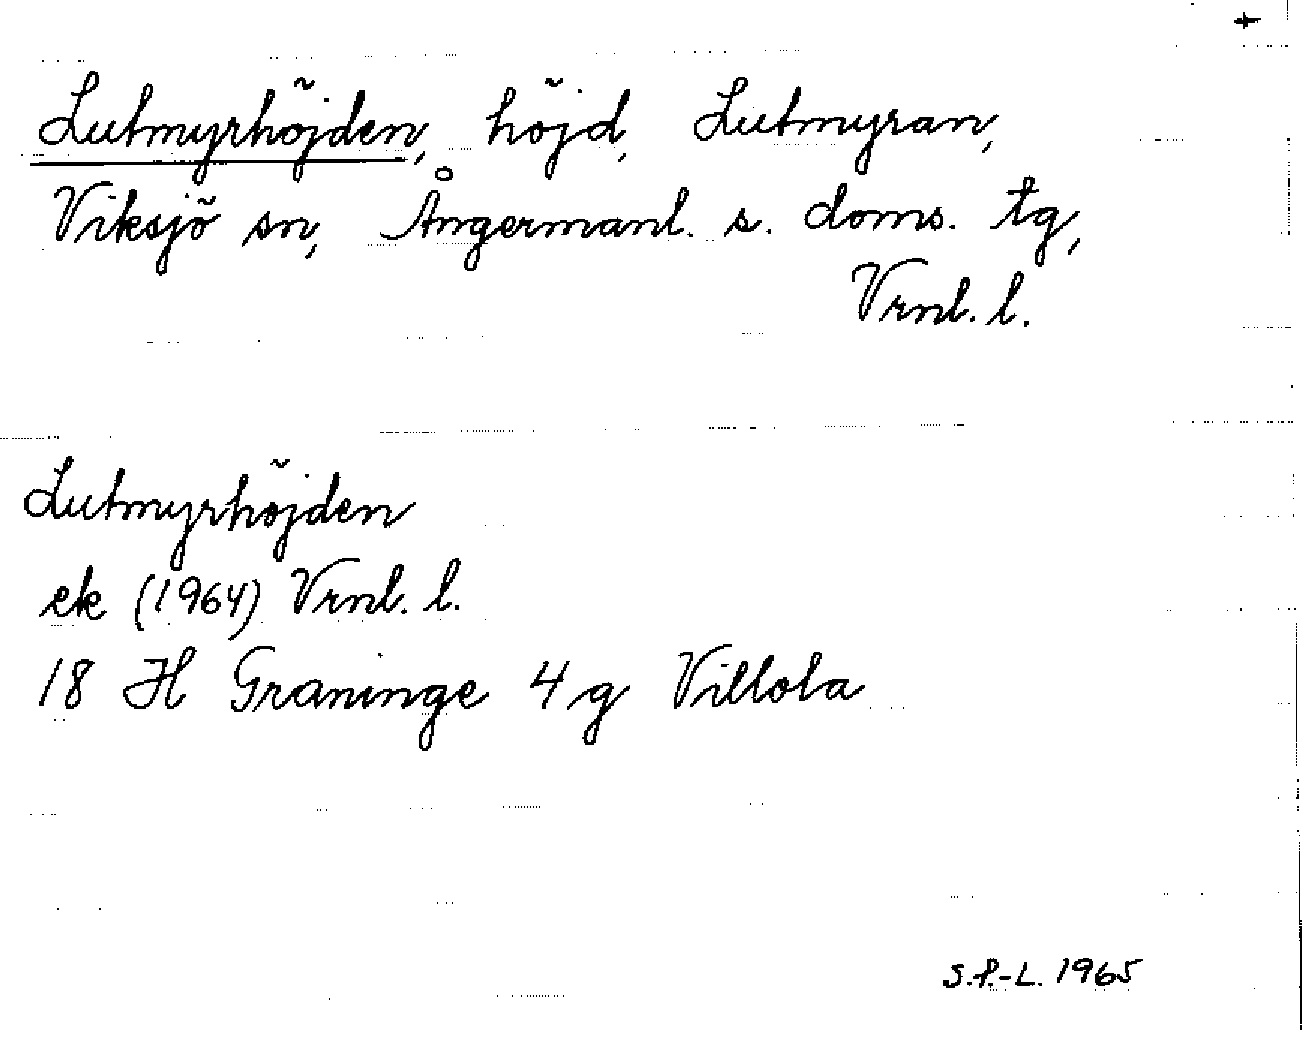 +
Lutmyrhöjden, höjd, Lutmyran,
Viksjö sn, Ångermanl. s. doms. tg,
Vrnl. l.
Lutmyrhöjden
ek (1964) Vrnl. l.
18 H Graninge 4 g Villola
S.P.-L. 1965